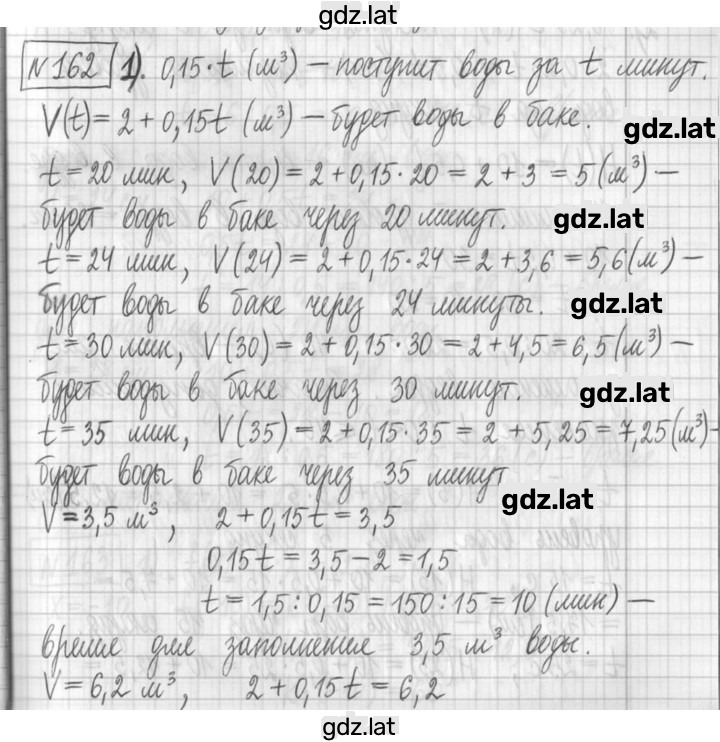 gdz.lat
№162 1). 0,15·t (м³) – поступит воды за t минут.
V(t)=2+0,15t (м³) – будет воды в баке.
gdz.lat
t=20 мин, V(20)=2+0,15·20=2+3=5(м³) –
будет воды в баке через 20 минут.
gdz.lat
t=24 мин, V(24)=2+0,15·24=2+3,6=5,6(м³) –
будет воды в баке через 24 минуты.
gdz.lat
t=30 мин, V(30)=2+0,15·30=2+4,5=6,5(м³) –
будет воды в баке через 30 минут.
gdz.lat
t=35 мин, V(35)=2+0,15·35=2+5,25=7,25(м³) –
будет воды в баке через 35 минут
gdz.lat
V=3,5 м³, 2+0,15t=3,5
0,15t=3,5–2=1,5
t=1,5:0,15=150:15=10 (мин) –
время для заполнение 3,5 м³ воды.
V=6,2 м³, 2+0,15t=6,2
gdz.lat